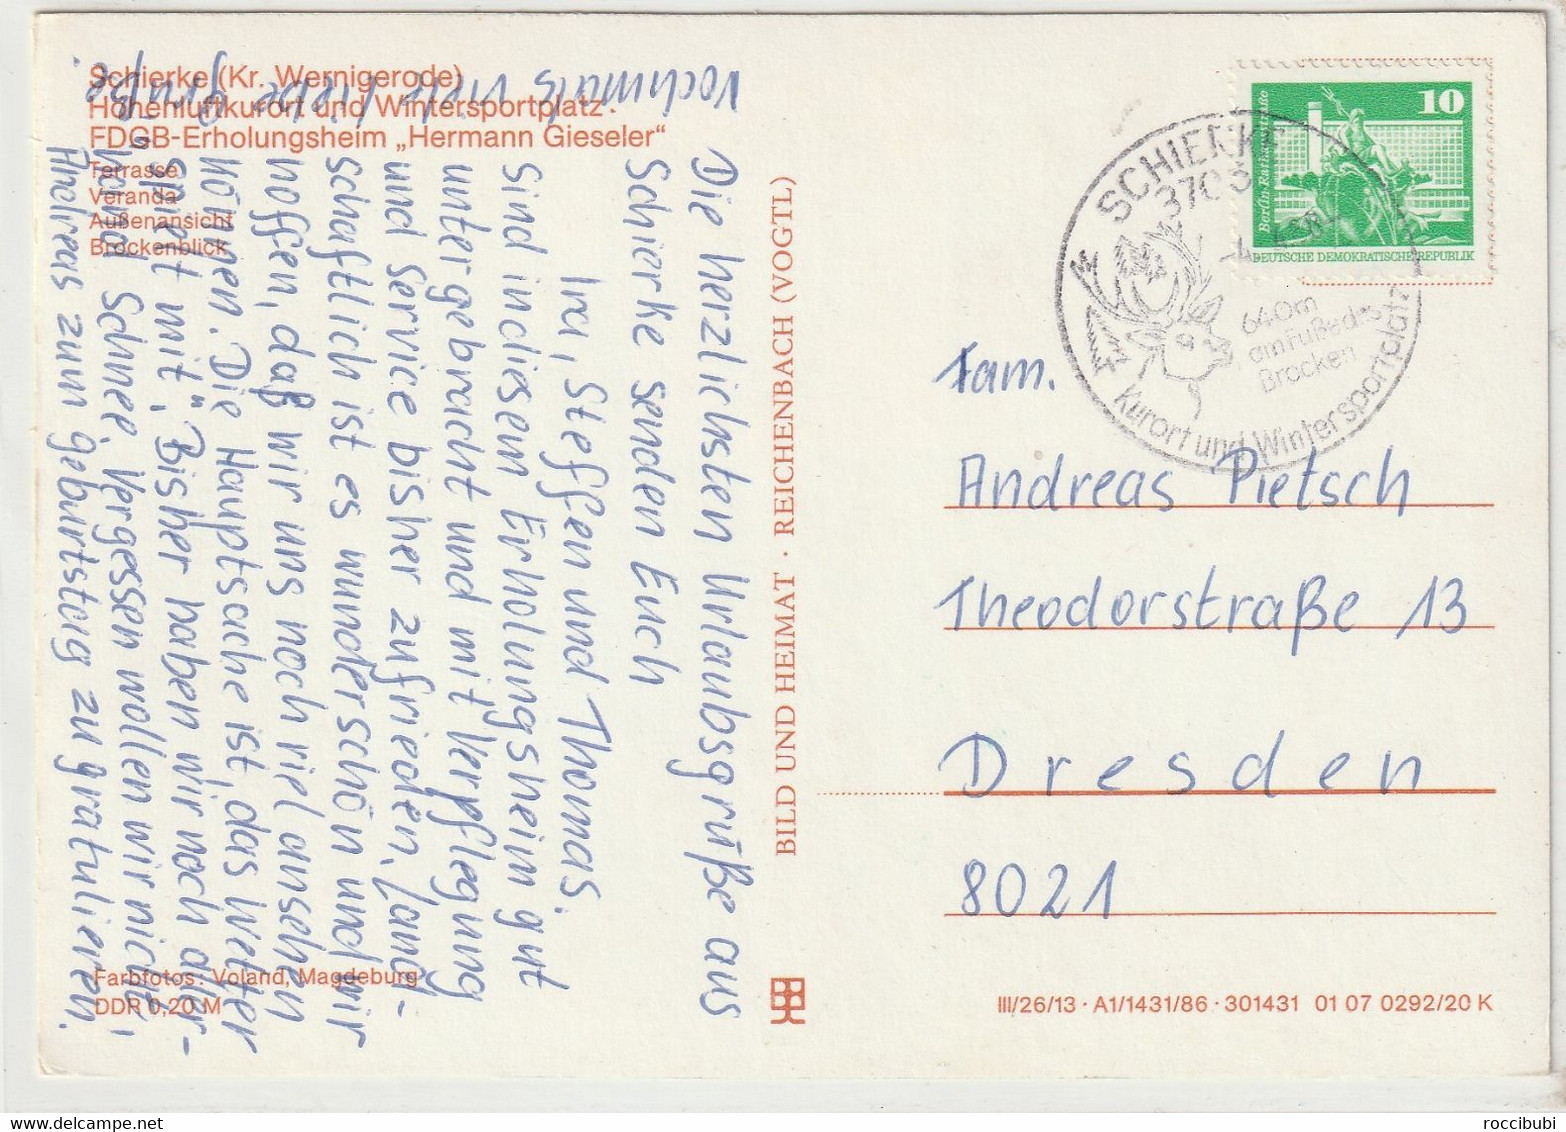 Schierke (Kr. Wernigerode)
Höhenluftkurort und Wintersportplatz
FDGB-Erholungsheim „Hermann Gieseler“
Terrasse
Veranda
Außenansicht
Brockenblick
Die herzlichsten Urlaubsgrüße aus
Schierke senden Euch
Ira, Steffen und Thomas.
Sind in diesem Erholungsheim gut
untergebracht und mit Verpflegung
und Service bisher zufrieden. Land-
schaftlich ist es wunderschön und wir
hoffen, daß wir uns noch viel ansehen
können. Die Hauptsache ist, das Wetter
"spielt mit". Bisher haben wir noch aller-
hand Schnee. Vergessen wollen wir nicht,
Andreas zum Geburtstag zu gratulieren.
Nochmals viele liebe Grüße.
Farbfotos: Voland, Magdeburg
DDR 0,20 M
BILD UND HEIMAT · REICHENBACH (VOGTL)
10
Berlin-Rathausstraße
DEUTSCHE DEMOKRATISCHE REPUBLIK
SCHIERKE
3703
640m
am Fuße des
Brocken
Kurort und Wintersportplatz
Fam.
Andreas Pietsch
Theodorstraße 13
Dresden
8021
III/26/13 · A1/1431/86 · 301431 01 07 0292/20 K
roccibubi